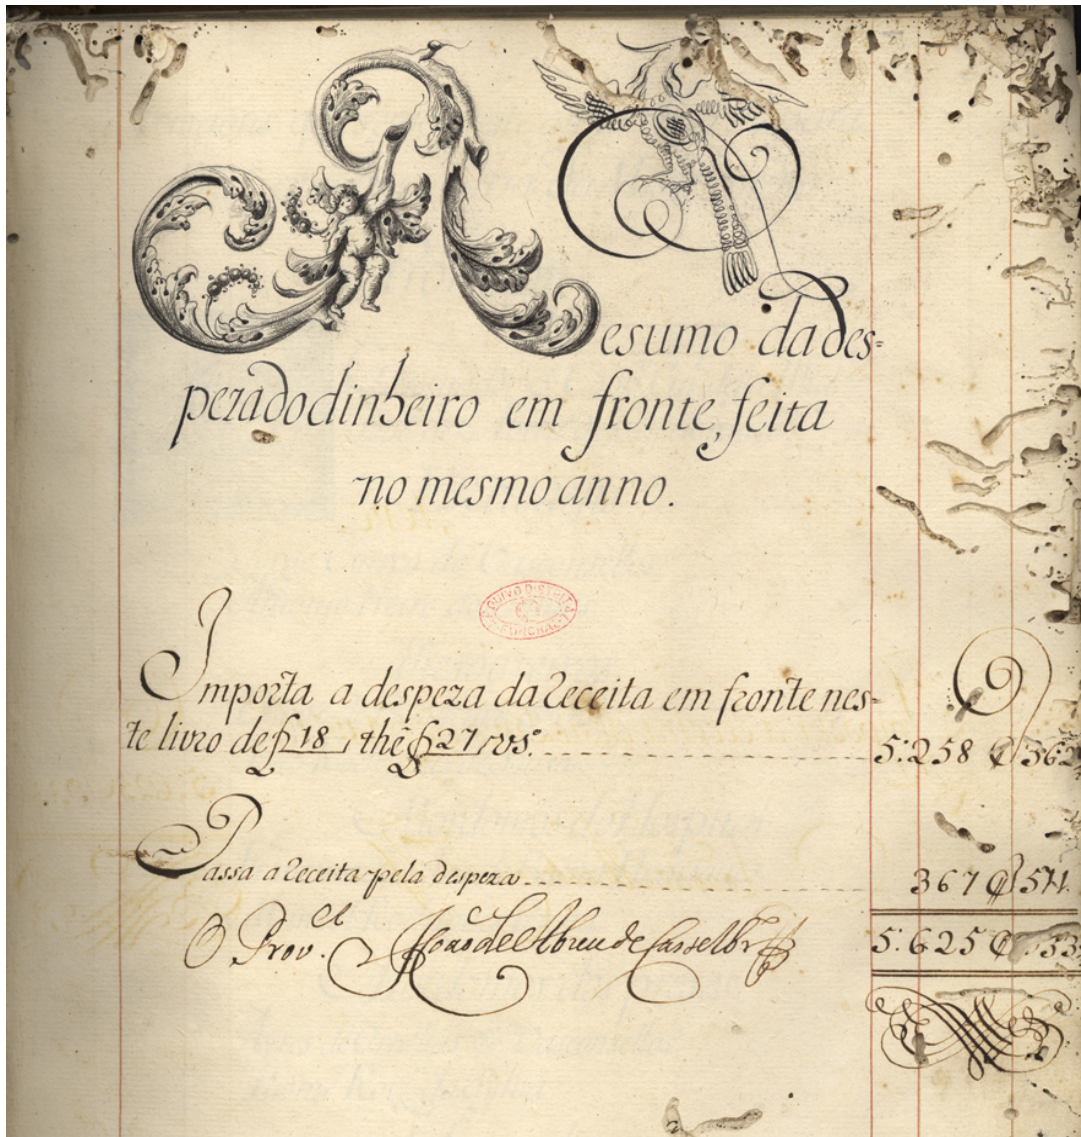 Resumo da des=
peza do dinheiro em fronte, feita
no mesmo anno.
ARQUIVO DISTRITAL
FUNCHAL
Importa a despeza da Receita em fronte nes=
te livro de f 18, the f 27 vs.º 5:258 $ 362
Passa a Receita pela despeza 367 $ 571
O Prov.el João de Abreu de 5:625 $ 933